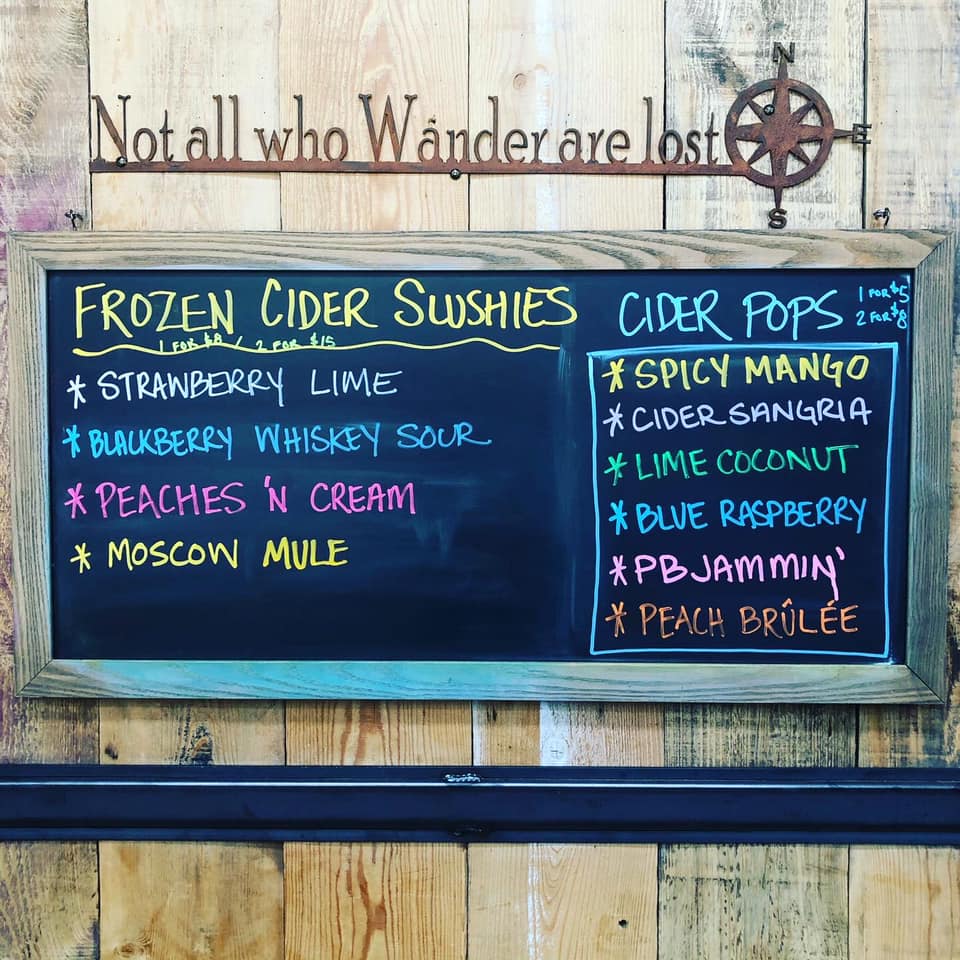 N
Not all who Wander are lost
E
S
FROZEN CIDER SLUSHIES
1 FOR $8 / 2 FOR $15
* STRAWBERRY LIME
* BLACKBERRY WHISKEY SOUR
* PEACHES 'N CREAM
* MOSCOW MULE
CIDER POPS
1 FOR $5
2 FOR $8
* SPICY MANGO
* CIDER SANGRIA
* LIME COCONUT
* BLUE RASPBERRY
* PB JAMMIN'
* PEACH BRÛLÉE